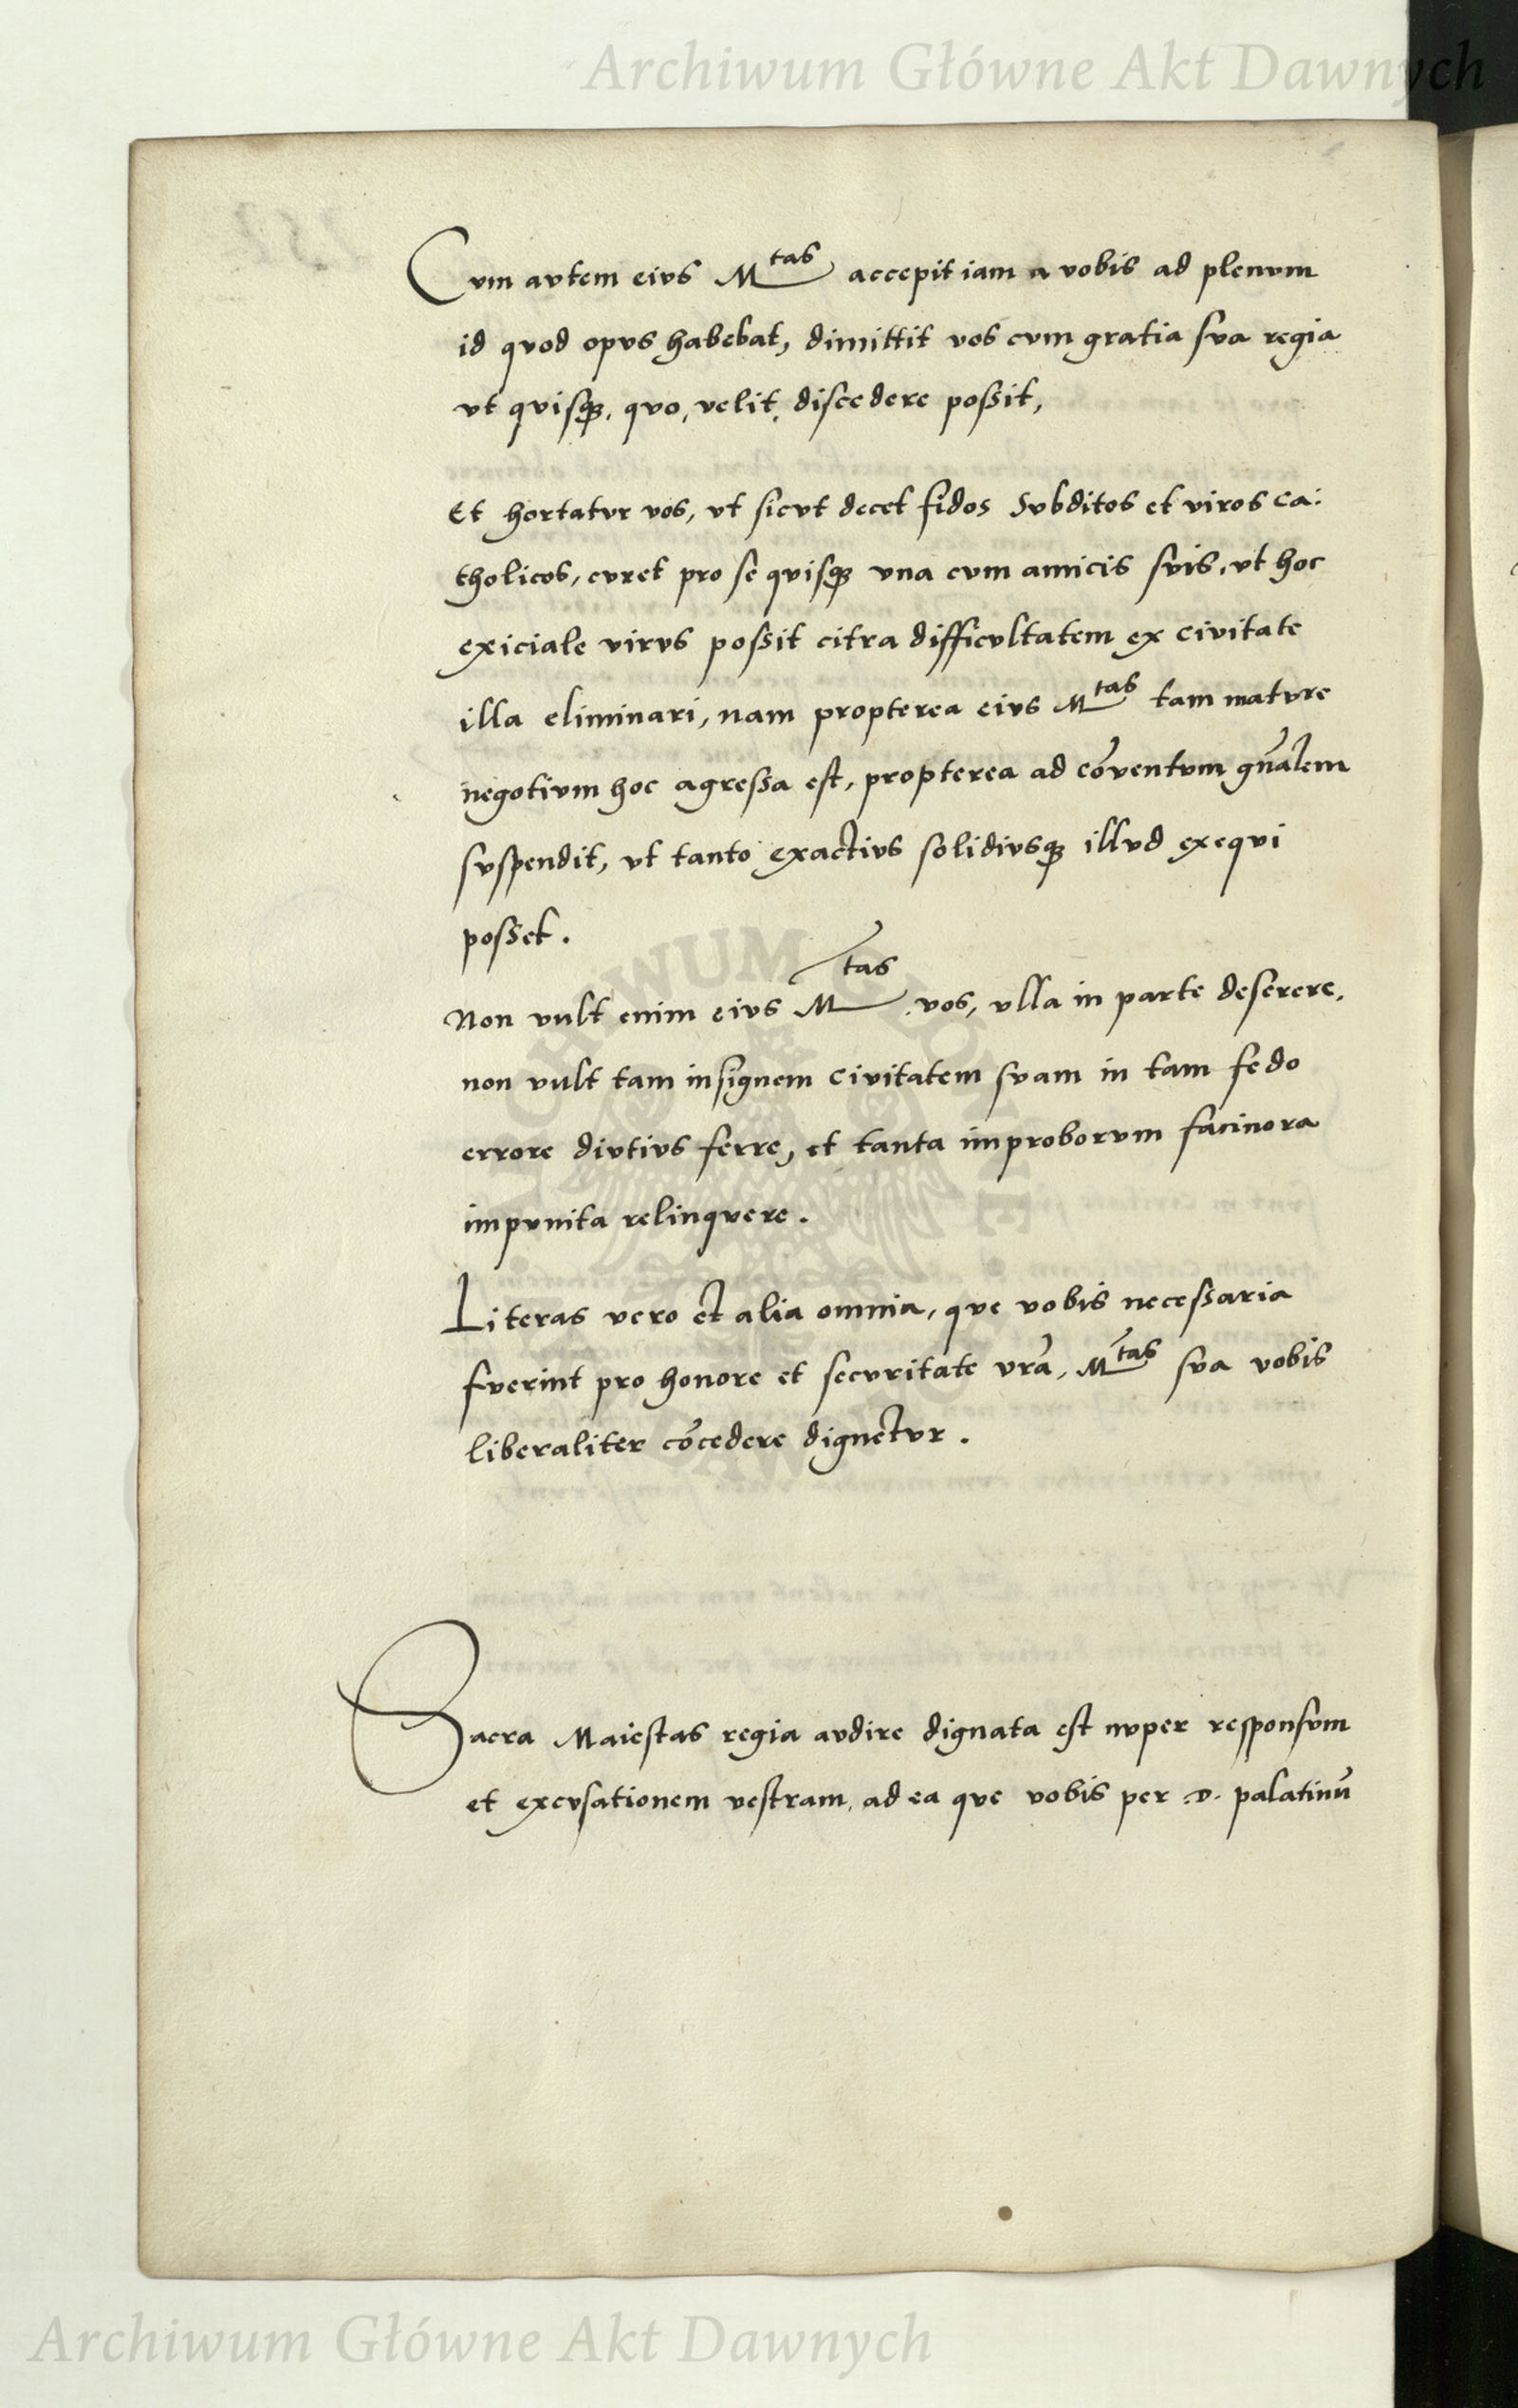 Archiwum Główne Akt Dawnych
Cvm avtem eivs M<sup>tas</sup> accepit iam a vobis ad plenvm
id qvod opvs habebat, dimittit vos cvm gratia sva regia
vt qvisqȝ, qvo, velit, discedere poßit,
Et hortatvr vos, vt sicvt decet fidos Svbditos et viros ca:
tholicos, cvret pro se qvisqȝ vna cvm amicis svis, vt hoc
exiciale virvs poßit citra difficvltatem ex civitate
illa eliminari, nam propterea eivs M<sup>tas</sup> tam matvre
negotivm hoc agreßa est, propterea ad cōventvm gn̄alem
svspendit, vt tanto exactivs solidivsqȝ illvd exeqvi
poßet.
Non vult enim eivs M<sup>tas</sup> vos, vlla in parte deserere,
non vult tam insignem Civitatem svam in tam fedo
errore divtivs ferre, et tanta improborvm facinora
impvnita relinqvere.
Literas vero et alia omnia, qve vobis neceßaria
fverint pro honore et secvritate vrā, M<sup>tas</sup> sva vobis
liberaliter cōcedere dignetvr.
Sacra Maiestas regia avdire dignata est nvper responsvm
et excvsationem vestram, ad ea qve vobis per .D. palatinū
ARCHIWUM GŁÓWNE AKT DAWNYCH
Archiwum Główne Akt Dawnych